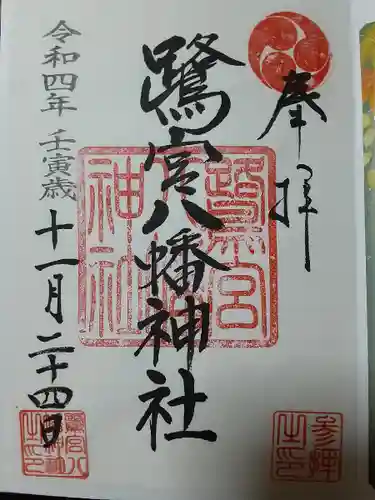 奉拝
鷺宮八幡神社
令和四年 壬寅歳 十一月二十四日
鷺宮八幡神社
参拝之印